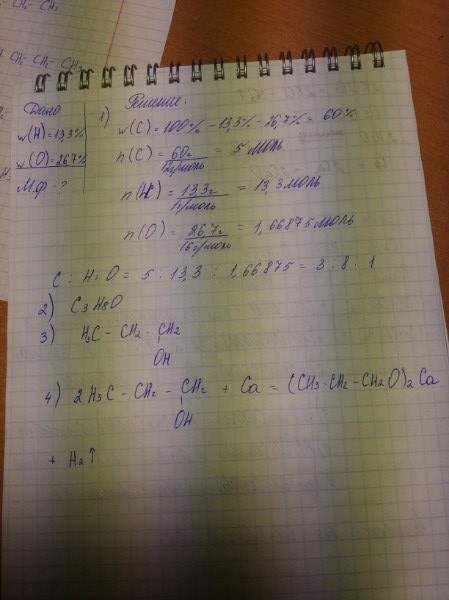 CH₂ - CH₃
CH₂ CH₂ - CH₃
Дано
Решение:
w(H) = 13,3%
w(O) = 26,7%
М.ф - ?
1) w(C) = 100% - 13,3% - 26,7% = 60%
n(C) = 60г / 12г/моль = 5 моль
n(H) = 13,3г / 1г/моль = 13,3 моль
n(O) = 26,7г / 16г/моль = 1,66875 моль
C : H : O = 5 : 13,3 : 1,66875 = 3 : 8 : 1
2) C₃H₈O
3) H₃C - CH₂ - CH₂
OH
4) 2H₃C - CH₂ - CH₂ + Ca = (CH₃-CH₂-CH₂O)₂Ca
OH
+ H₂↑